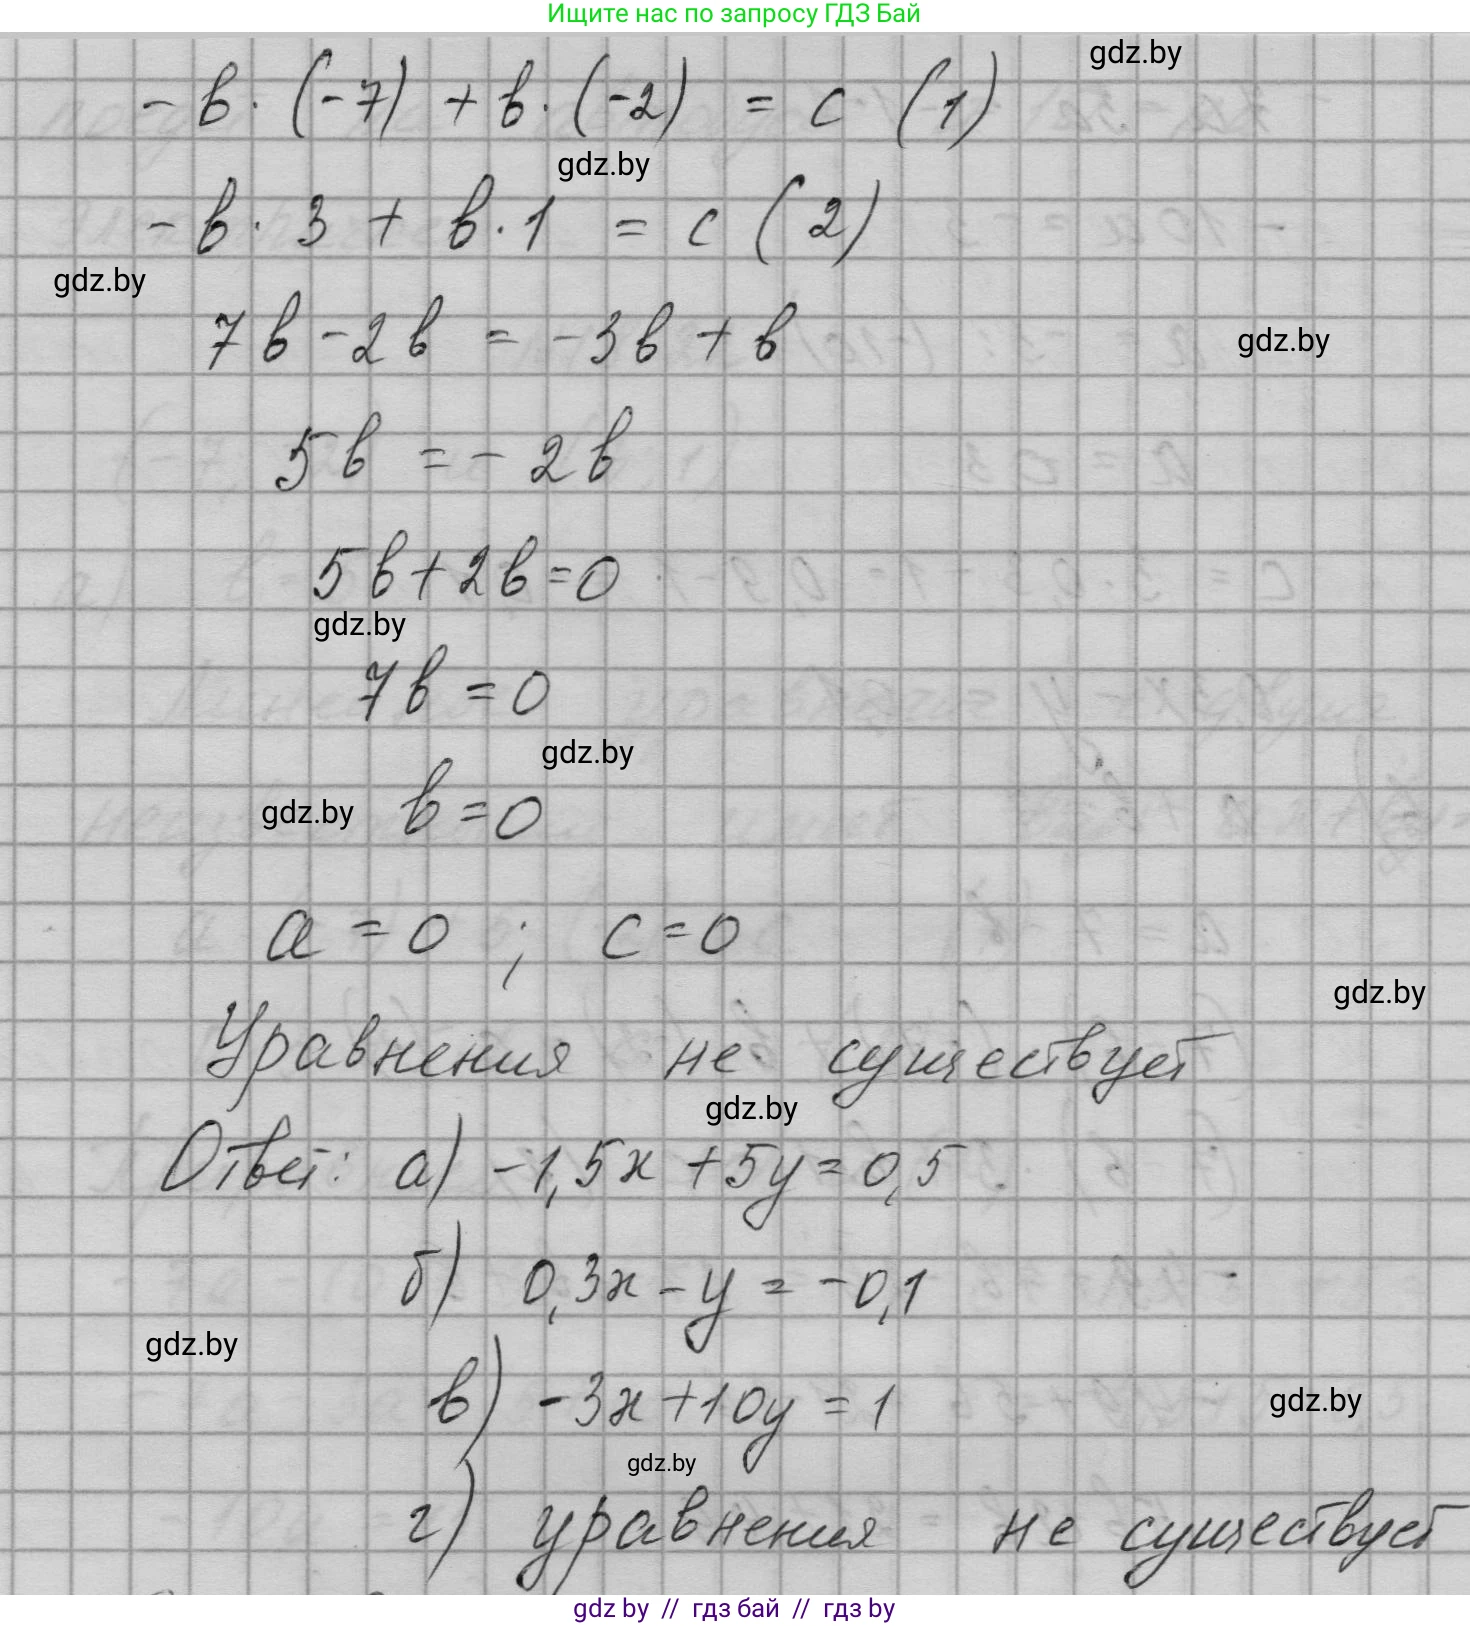 Ищите нас по запросу ГДЗ Бай
gdz.by
- в · (-7) + в · (-2) = с (1)
gdz.by
- в · 3 + в · 1 = с (2)
gdz.by
7в - 2в = -3в + в
gdz.by
5в = - 2в
5в + 2в = 0
gdz.by
7в = 0
gdz.by
gdz.by
в = 0
а = 0 ; с = 0
gdz.by
Уравнения не существует
gdz.by
Ответ: а) -1,5х + 5у = 0,5
б) 0,3х - у = -0,1
gdz.by
в) -3х + 10у = 1
gdz.by
gdz.by
г) уравнения не существует
gdz by // гдз бай // гдз by